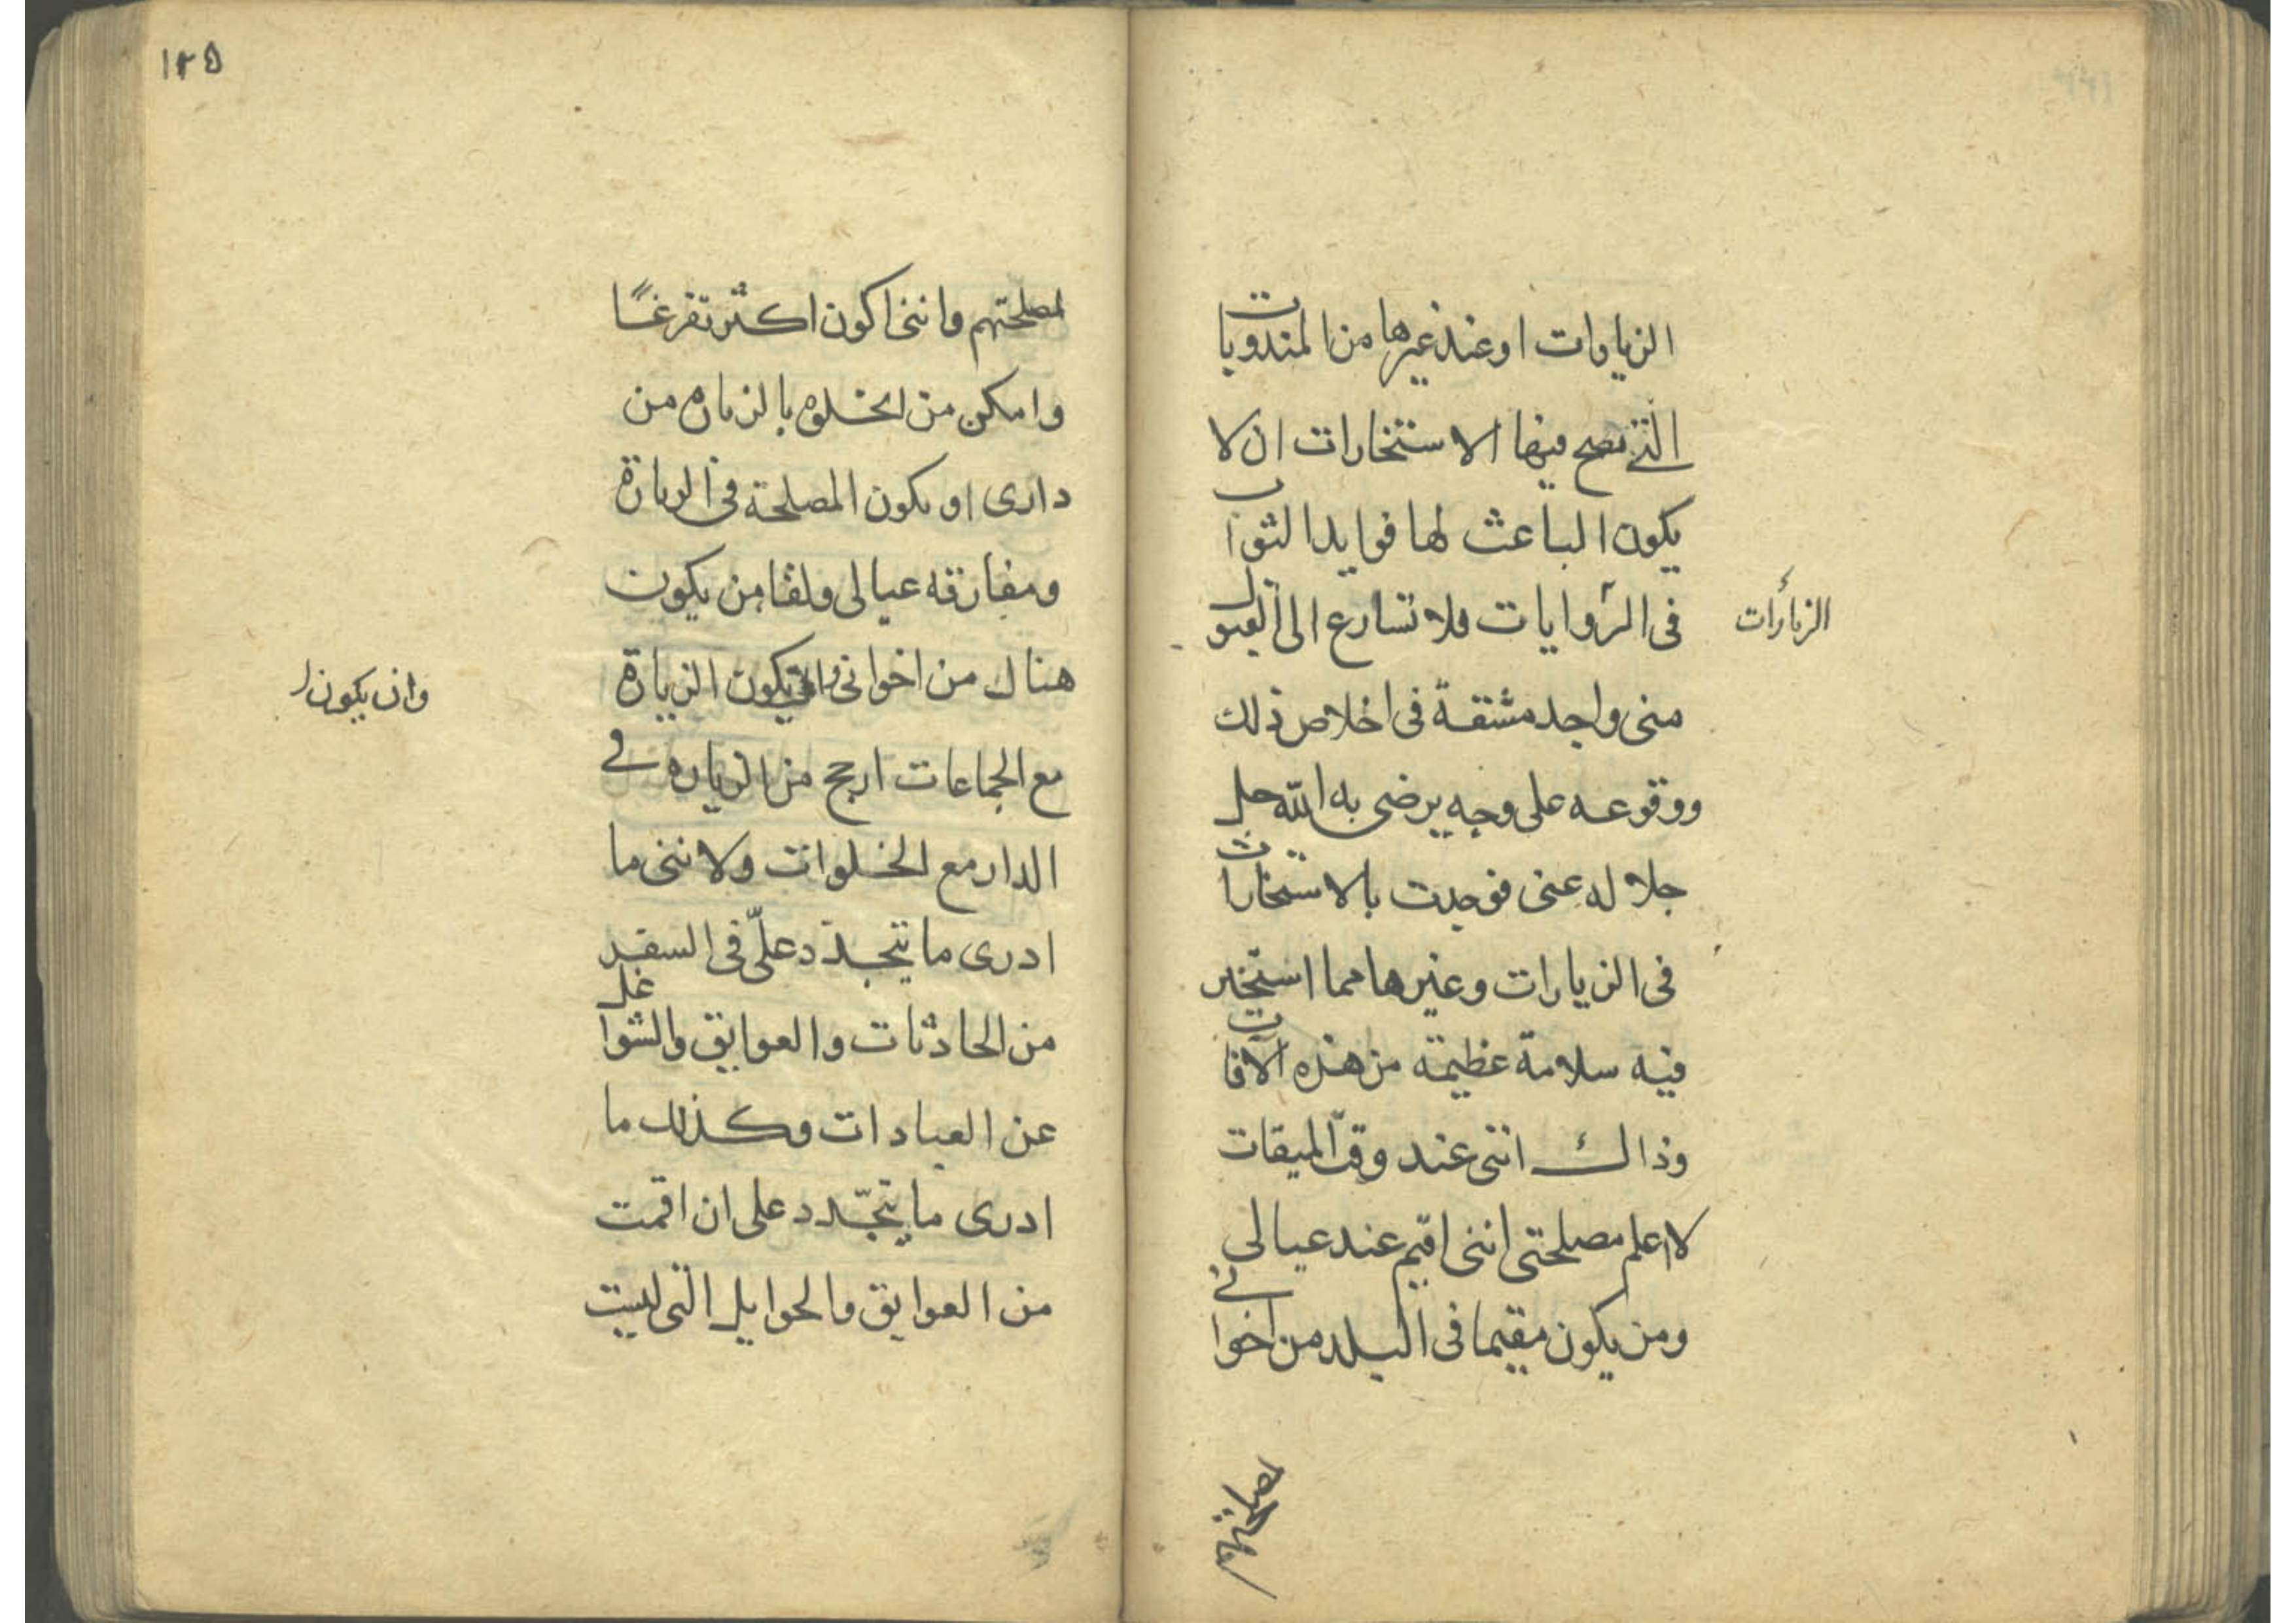 الزيارات او عند غيرها من المندوبات
التي تصح فيها الاستخارات ان لا
يكون الباعث لها فوايد الثواب
في الروايات فلا تسارع الى القبول
الزيارات
مني واجد مشقة في اخلاص ذلك
ووقوعه على وجه يرضى به الله جل
جلاله عني فوجدت بالاستخارات
في الزيارات وغيرها مما استخير
فيه سلامة عظيمة من هذه الآفات
وذالك انني عند وقت الميقات
لا اعلم مصلحتي انني اقيم عند عيالي
ومن يكون مقيما في البلد من اخواني
١٢٥
لمصلحتهم وانني اكون اكثر تفرغًا
وامكن من الخلوه بالزياره من
داري او يكون المصلحة في الزيارة
ومفارقه عيالي ولقا من يكون
هناك من اخواني يكون الزيارة
وان يكون
مع الجماعات ارجح من الزياره في
الدار مع الخلوات ولانني ما
ادرى ما يتجدّد علىّ في السفر
من الحادثات والعوايق والشواغل
عن العبادات وكذلك ما
ادرى ما يتجدّد على ان اقمت
من العوايق والحوايل التي ليست